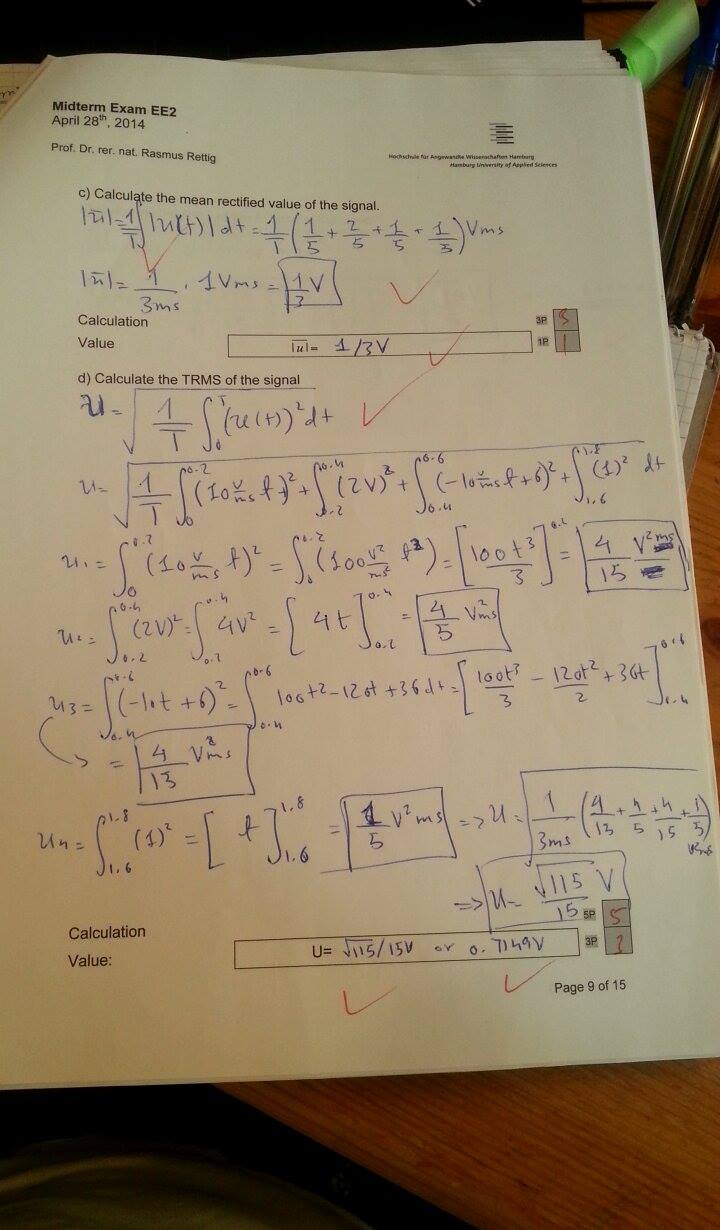 Midterm Exam EE2
April 28th, 2014
Prof. Dr. rer. nat. Rasmus Rettig
Hochschule für Angewandte Wissenschaften Hamburg
Hamburg University of Applied Sciences
c) Calculate the mean rectified value of the signal.
|ū| = 1/T ∫ |u(t)| dt = 1/T (1/5 + 2/5 + 1/5 + 1/5) Vms
|ū| = 1/3ms · 1Vms = 1/3 V
Calculation 3P 3
Value |u| = 1/3V 1P 1
d) Calculate the TRMS of the signal
U = √(1/T ∫₀ᵀ (u(t))² dt
U = √(1/T ∫₀^0.2 (10 v/ms t)² + ∫0.2^0.4 (2V)² + ∫0.4^0.6 (-10 v/ms t + 6)² + ∫1.6^1.8 (1)² dt
u₁ = ∫₀^0.2 (10 v/ms t)² = ∫₀^0.2 (100 v²/ms² t²) = [100t³/3]^0.2 = 4/15 V²
u₂ = ∫0.2^0.4 (2V)² = ∫0.2^0.4 4V² = [4t]0.2^0.4 = 4/5 V²ms
u3 = ∫0.4^0.6 (-10t + 6)² = ∫0.4^0.6 100t² - 120t + 36 dt = [100t³/3 - 120t²/2 + 36t]0.4^0.6
= 4/15 V²ms
u4 = ∫1.6^1.8 (1)² = [t]1.6^1.8 = 1/5 V²ms => U = √(1/3ms (4/15 + 4/5 + 4/15 + 1/5)
=> U = √115/15 V
Calculation 5P 5
Value: U= √115/15V or 0.7149V 3P
Page 9 of 15